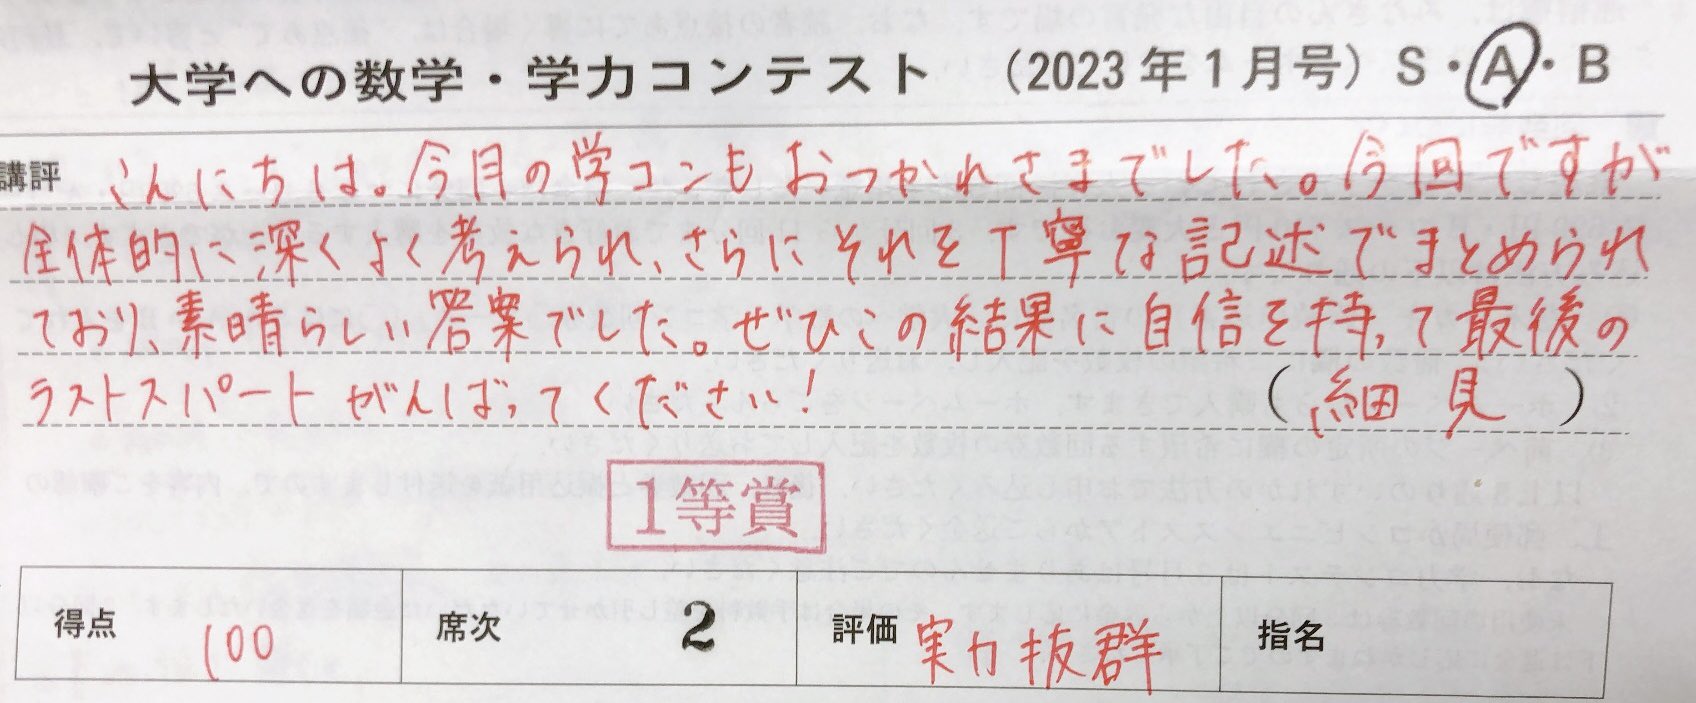 大学への数学・学力コンテスト (2023年1月号) S・A・B
講評 こんにちは。今月の学コンもおつかれさまでした。今回ですが
全体的に深くよく考えられ、さらにそれを丁寧な記述でまとめられ
ており、素晴らしい答案でした。ぜひこの結果に自信を持って最後の
ラストスパートがんばってください!
(細見)
1等賞
得点 100 席次 2 評価 実力抜群 指名